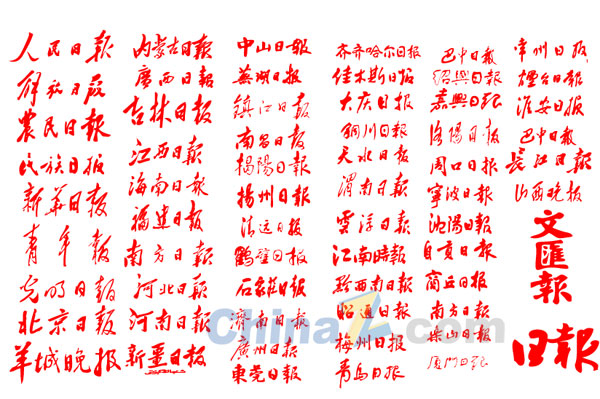 人民日報
解放日报
農民日報
民族日报
新华日报
青年報
光明日報
北京日报
羊城晚报
内蒙古日報
廣西日報
吉林日報
江西日報
海南日报
福建日报
南方日报
河北日报
河南日报
新疆日报
中山日報
蕪湖日报
镇江日报
南昌日报
揭陽日报
揚州日报
清远日报
鶴壁日报
石家莊日报
濟南日报
廣州日报
東莞日報
齐齐哈尔日报
佳木斯日报
大庆日报
铜川日報
天水日報
渭南日报
雲浮日报
江南時報
黔西南日报
昭通日报
梅州日报
青岛日报
巴中日報
绍興日报
嘉興日报
洛陽日报
周口日报
寧波日报
沈陽日报
自貢日报
商丘日报
南方日报
乐山日报
厦门日报
常州日报
煙台日報
淮安日报
巴中日報
長江日報
山西晚报
文匯報
日報
ChinaZ.com